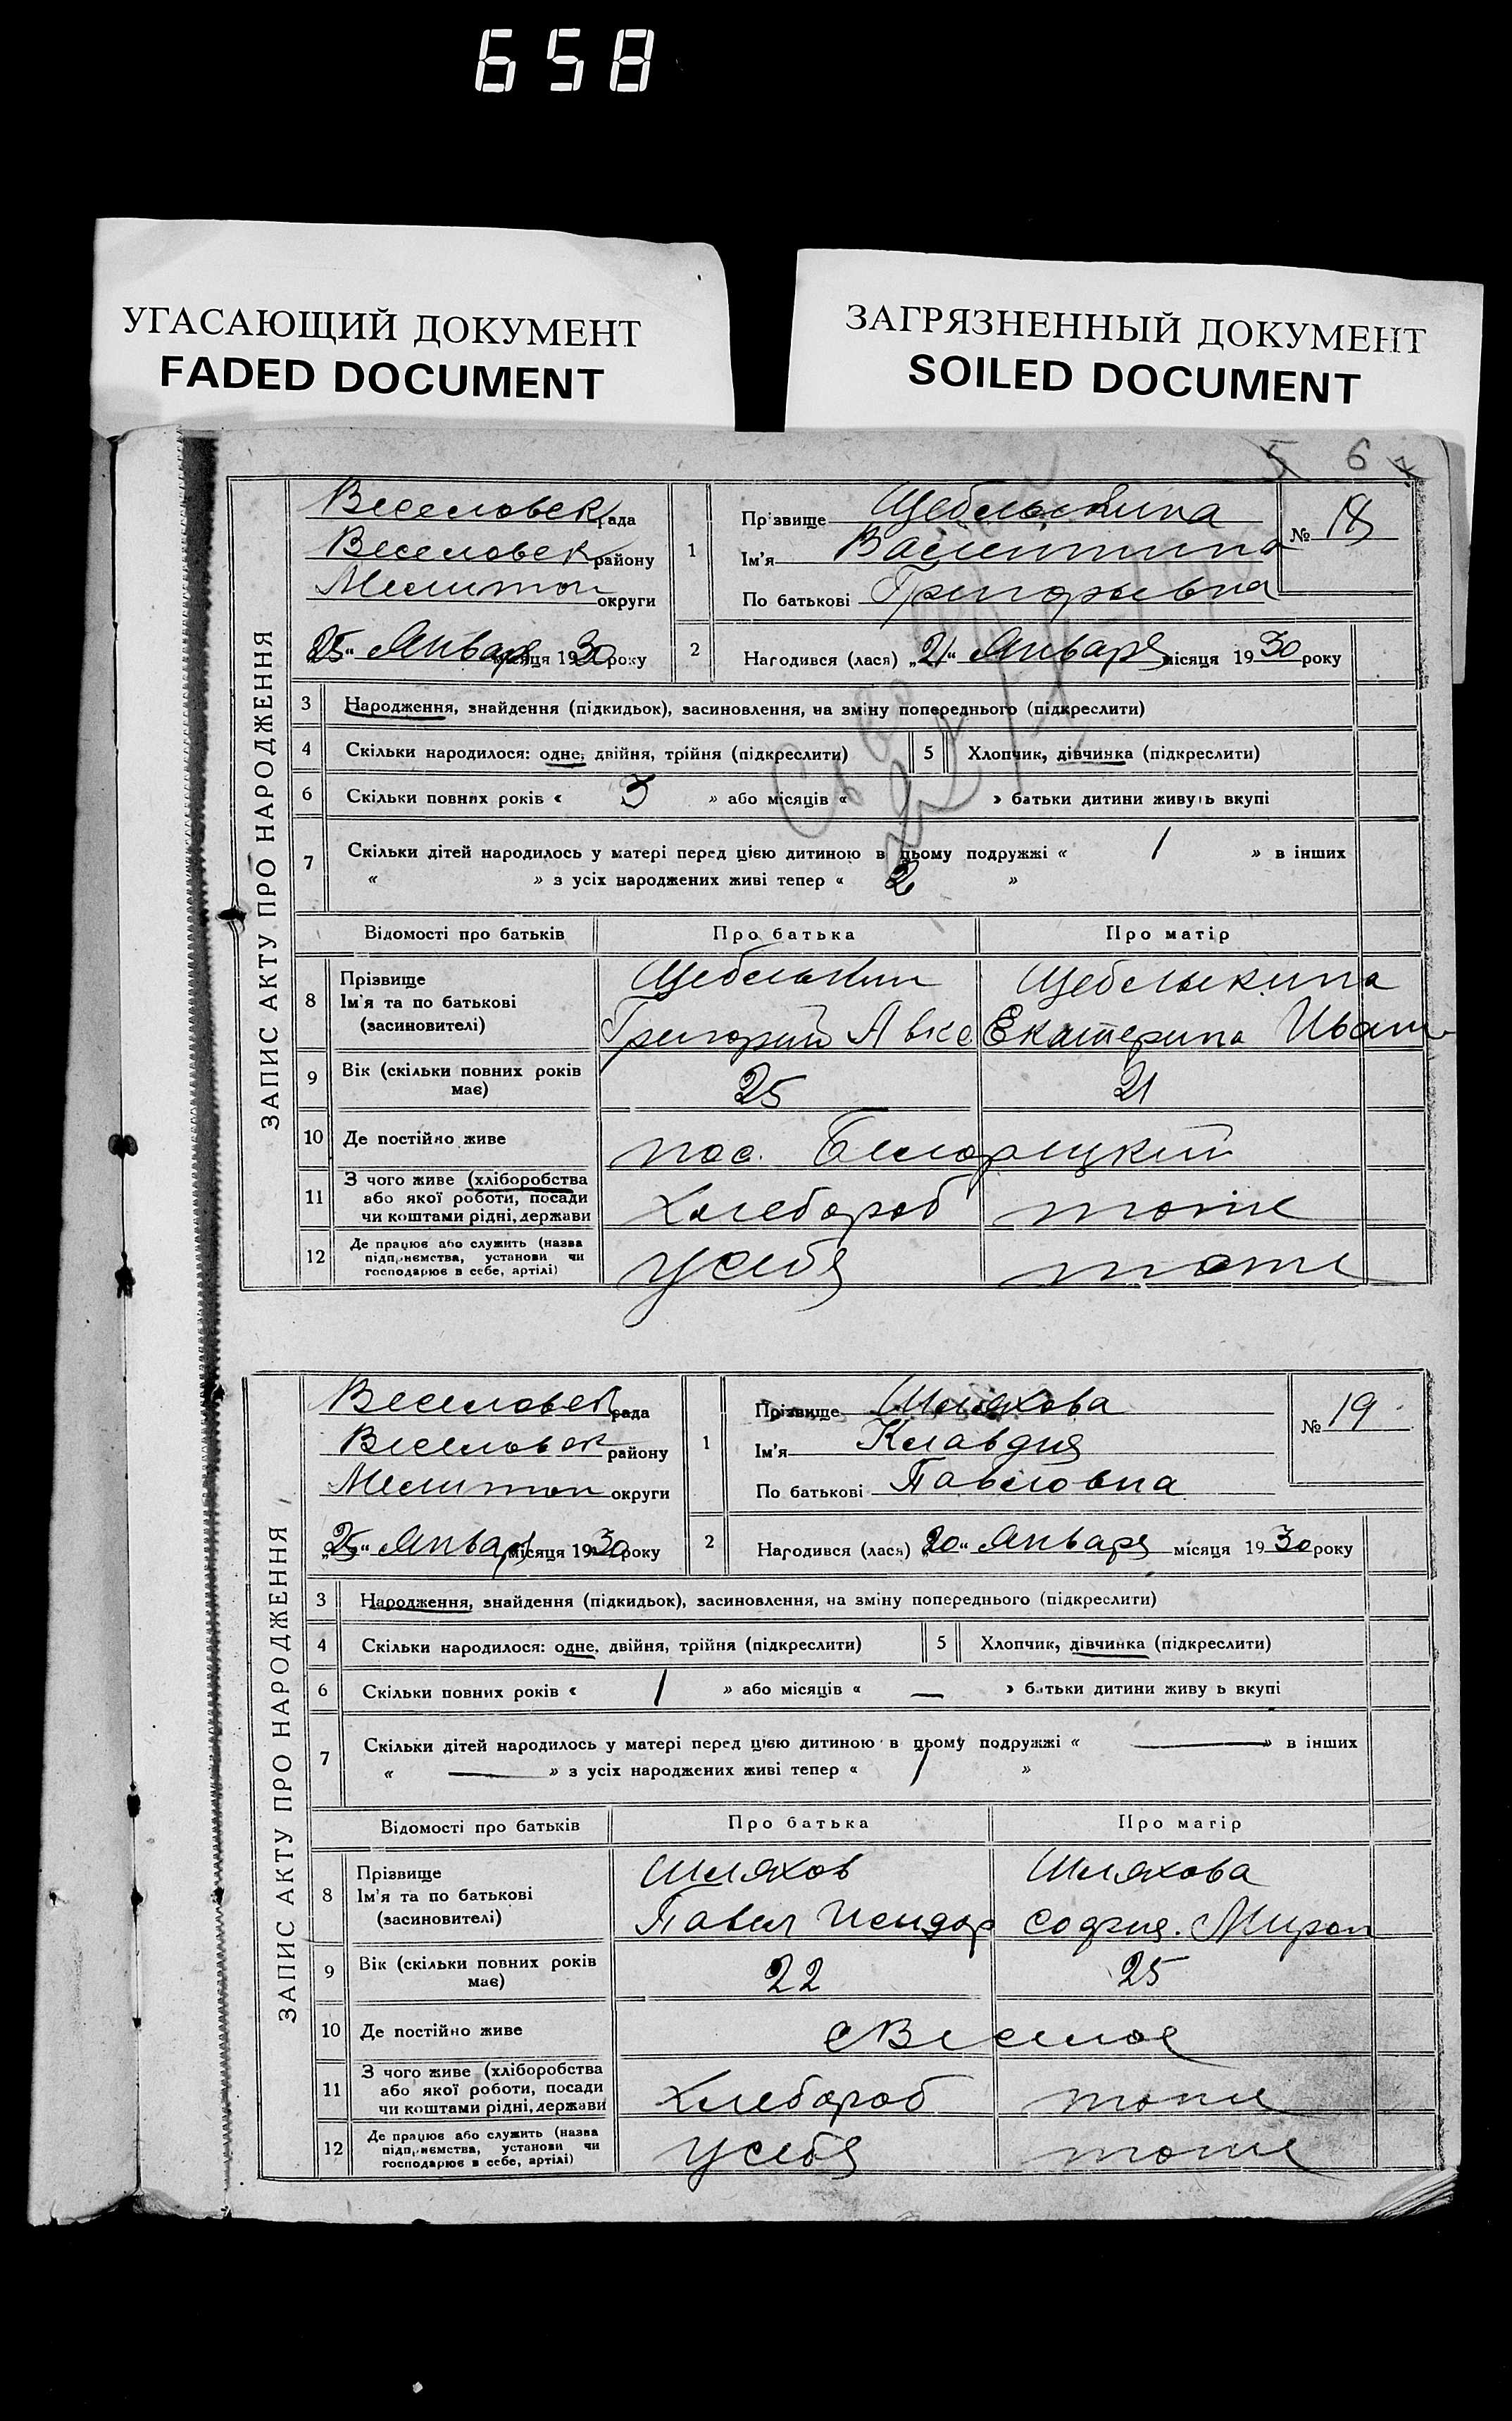 658
УГАСАЮЩИЙ ДОКУМЕНТ
FADED DOCUMENT
ЗАГРЯЗНЕННЫЙ ДОКУМЕНТ
SOILED DOCUMENT
5 6
ЗАПИС АКТУ ПРО НАРОДЖЕННЯ
Веселовск рада
Веселовск району
Мелитоп округи
„25“ Января місяця 1930 року
1 Прізвище Щебелыкина
Ім'я Валентина
По батькові Григорьевна
№ 18
2 Народився (лася) „21“ Января місяця 1930 року
3 Народження, знайдення (підкидьок), засиновлення, на зміну попереднього (підкреслити)
4 Скільки народилося: одне, двійня, трійня (підкреслити) 5 Хлопчик, дівчинка (підкреслити)
6 Скільки повних років « 3 » або місяців « » батьки дитини живуть вкупі
7 Скільки дітей народилось у матері перед цією дитиною в цьому подружжі « 1 » в інших
« » з усіх народжених живі тепер « 2 »
Відомості про батьків Про батька Про матір
8 Прізвище Щебелыкин Щебелыкина
Ім'я та по батькові
(засиновителі) Григорий Авкс Екатерина Иван
9 Вік (скільки повних років має) 25 21
10 Де постійно живе пос. Белорецкий
11 З чого живе (хліборобства
або якої роботи, посади
чи коштами рідні, держави Хлебороб тоже
12 Де працює або служить (назва
підприємства, установи чи
господарює в себе, артілі) у себя тоже
ЗАПИС АКТУ ПРО НАРОДЖЕННЯ
Веселовск рада
Веселовск району
Мелитоп округи
„25“ Января місяця 1930 року
1 Прізвище Шляхова
Ім'я Клавдия
По батькові Павловна
№ 19
2 Народився (лася) „20“ Января місяця 1930 року
3 Народження, знайдення (підкидьок), засиновлення, на зміну попереднього (підкреслити)
4 Скільки народилося: одне, двійня, трійня (підкреслити) 5 Хлопчик, дівчинка (підкреслити)
6 Скільки повних років « 1 » або місяців « — » батьки дитини живуть вкупі
7 Скільки дітей народилось у матері перед цією дитиною в цьому подружжі « — » в інших
« — » з усіх народжених живі тепер « 1 »
Відомості про батьків Про батька Про матір
8 Прізвище Шляхов Шляхова
Ім'я та по батькові
(засиновителі) Павел Исидор София. Мирон
9 Вік (скільки повних років має) 22 25
10 Де постійно живе с Веселое
11 З чого живе (хліборобства
або якої роботи, посади
чи коштами рідні, держави Хлебороб тоже
12 Де працює або служить (назва
підприємства, установи чи
господарює в себе, артілі) у себя тоже